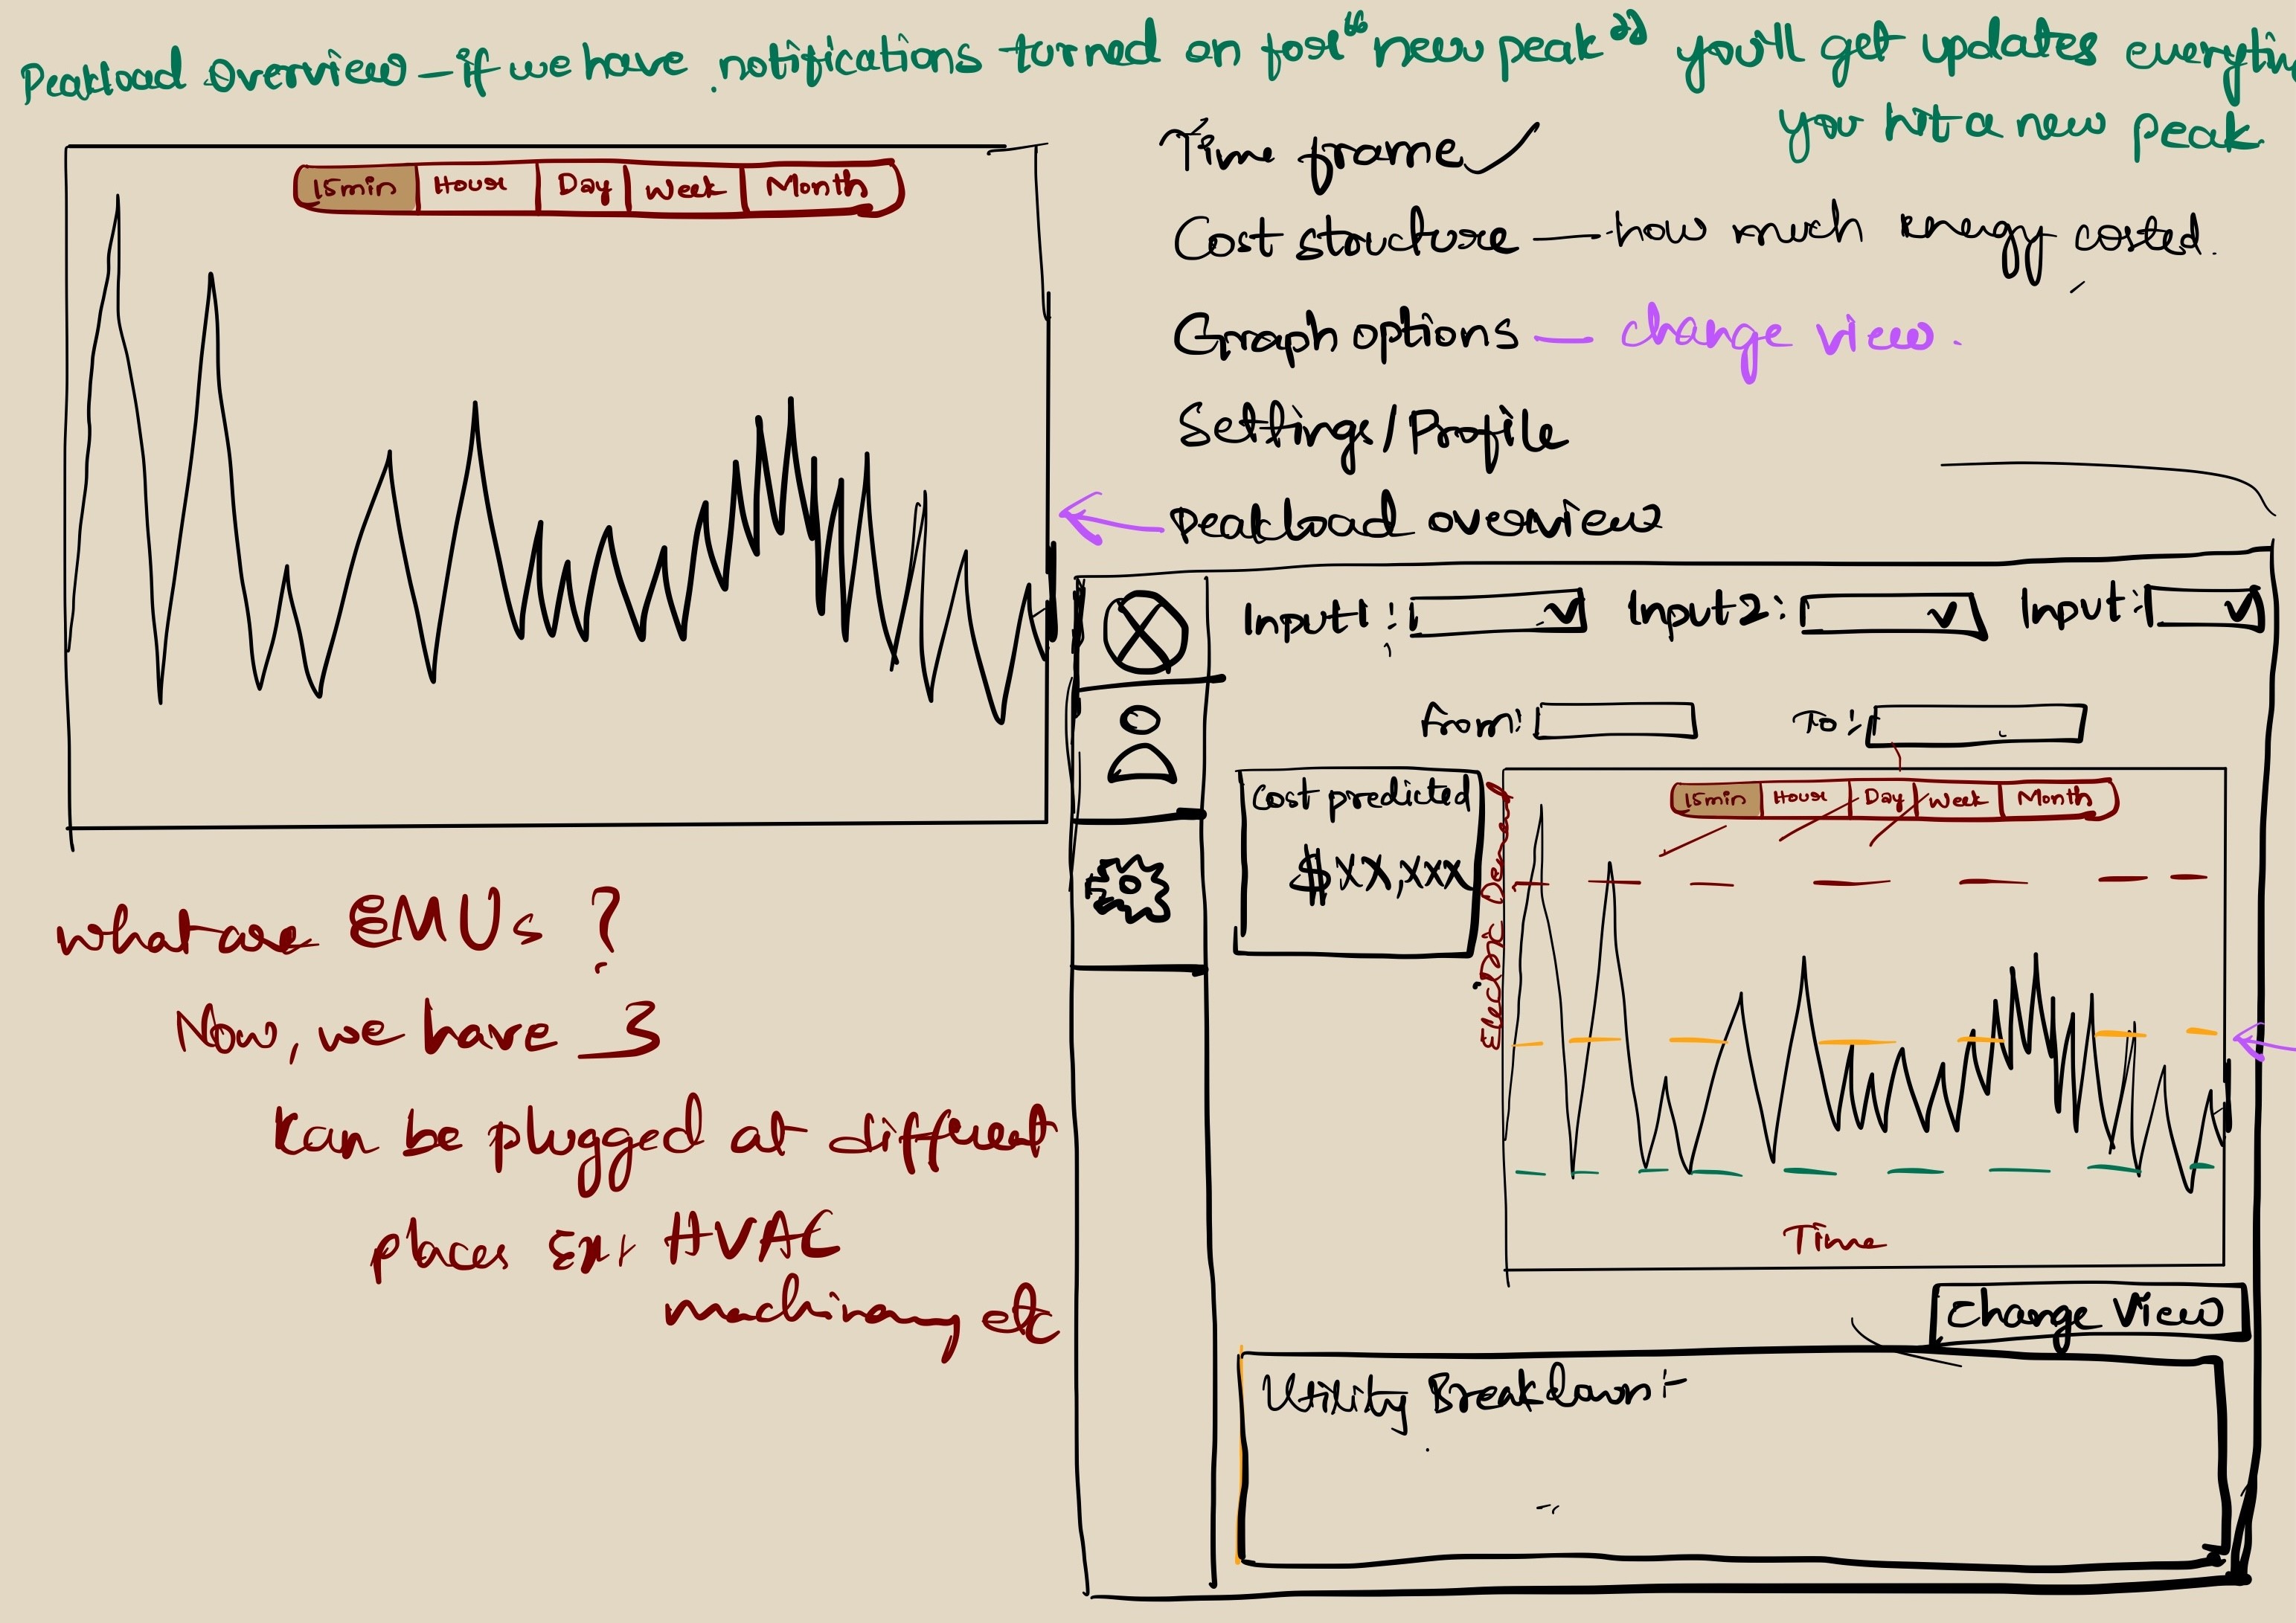 Peakload Overview - if we have notifications turned on for "new peak" you'll get updates everytin
you hit a new peak.
15min Hour Day Week Month
Time frame ✓
Cost structure — how much energy costed.
Graph options — change view.
Settings/Profile
Peakload overview
Input1: Input2: Input:
from: To:
Cost predicted
$XX,XXX
15min Hour Day Week Month
Electric Demand
Time
Change View
Utility Breakdown:-
what are EMUs ?
Now, we have 3
Can be plugged at different
places Ex: HVAC
machinary etc